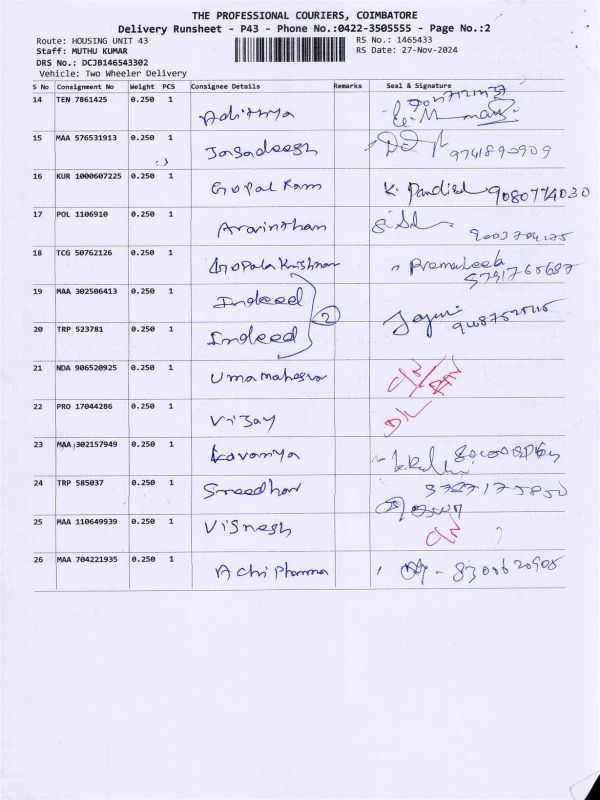 THE PROFESSIONAL COURIERS, COIMBATORE
Delivery Runsheet - P43 - Phone No.:0422-3505555 - Page No.:2
Route: HOUSING UNIT 43 RS No.: 1465433
Staff: MUTHU KUMAR RS Date: 27-Nov-2024
DRS No.: DCJB146543302
Vehicle: Two Wheeler Delivery
S No Consignment No Weight PCS Consignee Details Remarks Seal & Signature
14 TEN 7861425 0.250 1 Adithya
15 MAA 576531913 0.250 1 Jagadeesh
16 KUR 1000607225 0.250 1 Gopal Ram K. Pandid 9080774030
17 POL 1106910 0.250 1 Aravinthan
18 TCG 50762126 0.250 1 Gopala Krishnan
19 MAA 302506413 0.250 1 Indeed
2
20 TRP 523781 0.250 1 Indeed
21 NDA 906520925 0.250 1 Uma maheswar
22 PRO 17044286 0.250 1 Vijay D/L
23 MAA 302157949 0.250 1 Kavanya
24 TRP 585037 0.250 1 Sreedhar
25 MAA 110649939 0.250 1 Visnesh
26 MAA 704221935 0.250 1 Achi Pharma